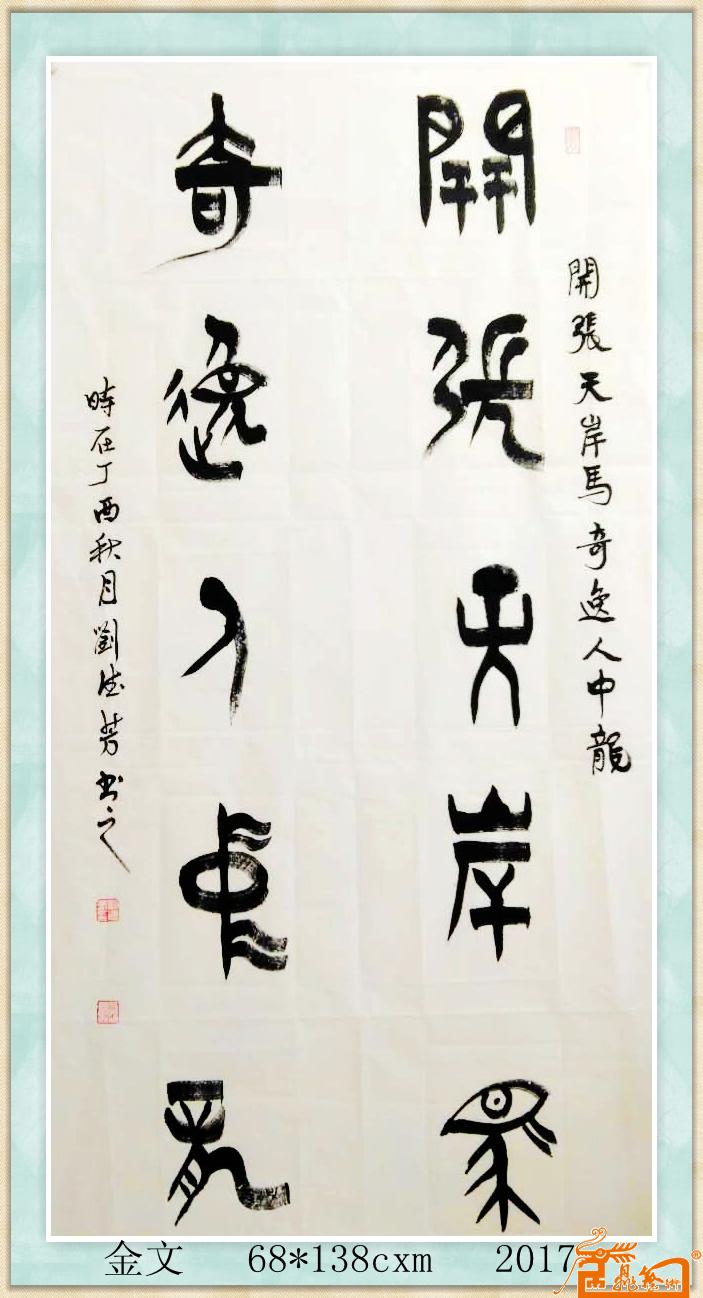 開張天岸馬奇逸人中龍
開張天岸馬
奇逸人中龍
時在丁酉秋月劉德芳书之
金文 68*138cxm 2017